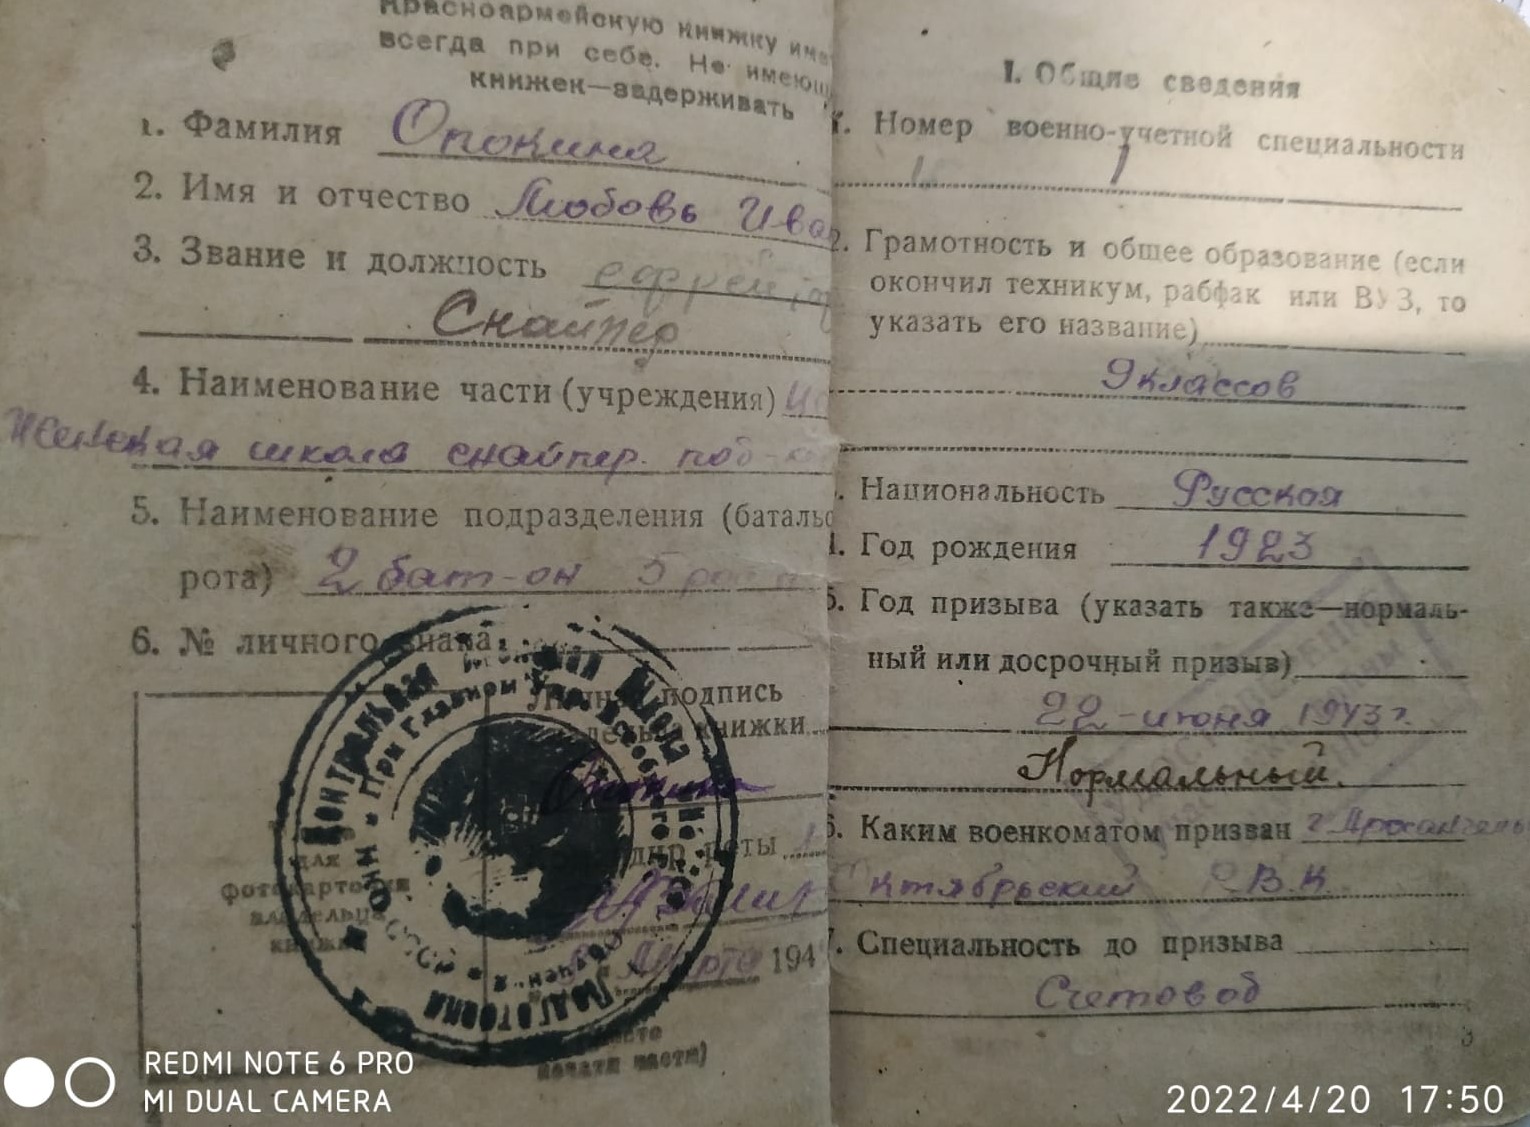 Красноармейскую книжку име
всегда при себе. Не имеющ
книжек—задерживать
1. Фамилия Опокина
2. Имя и отчество Любовь Ива
3. Звание и должность ефрейтор
Снайпер
4. Наименование части (учреждения)
Женская школа снайпер. под-
5. Наименование подразделения (батальо
рота) 2 бат-он 5 рота
6. № личного знака
подпись
книжки
Опокина
роты
Марта 194
для
фотокарточки
владельца
книжки
место
печати части)
Центральная женская школа
При Главном Упр. Всеобуча
НКО СССР
подготовки
I. Общие сведения
1. Номер военно-учетной специальности
1
2. Грамотность и общее образование (если
окончил техникум, рабфак или ВУЗ, то
указать его название)
9 классов
. Национальность Русская
4. Год рождения 1923
5. Год призыва (указать также—нормаль-
ный или досрочный призыв)
22-июня 1943 г.
Нормальный.
6. Каким военкоматом призван г. Архангель
Октябрьский РВК
7. Специальность до призыва
Счетовод
3
REDMI NOTE 6 PRO
MI DUAL CAMERA
2022/4/20 17:50